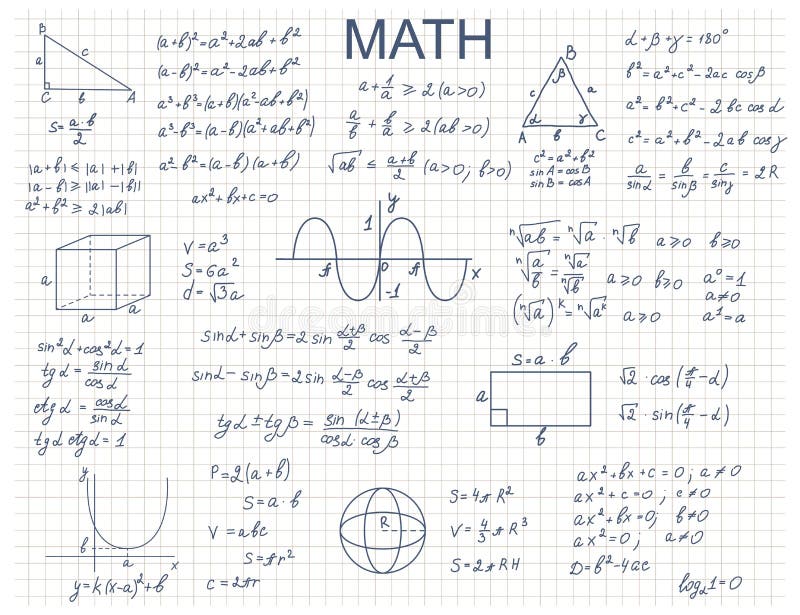 MATH
B
a
c
C
b
A
S = a·b/2
|a+b| ≤ |a| + |b|
|a−b| ≥ |a| − |b|
a² + b² ≥ 2|ab|
(a+b)² = a² + 2ab + b²
(a−b)² = a² − 2ab + b²
a³ + b³ = (a+b)(a² − ab + b²)
a³ − b³ = (a−b)(a² + ab + b²)
a² − b² = (a−b)(a+b)
ax² + bx + c = 0
a + 1/a ≥ 2 (a>0)
a/b + b/a ≥ 2 (ab>0)
√ab ≤ (a+b)/2 (a>0; b>0)
B
β
c
a
α
γ
A
b
C
c² = a² + b²
sin A = cos B
sin B = cos A
α + β + γ = 180°
b² = a² + c² − 2ac cosβ
a² = b² + c² − 2bc cosα
c² = a² + b² − 2ab cosγ
a/sinα = b/sinβ = c/sinγ = 2R
a
a
a
V = a³
S = 6a²
d = √3a
y
1
π
0
π
x
-1
ⁿ√ab = ⁿ√a · ⁿ√b a ≥ 0 b ≥ 0
ⁿ√(a/b) = ⁿ√a/ⁿ√b a ≥ 0 b ≥ 0
(ⁿ√a)ᵏ = ⁿ√aᵏ a ≥ 0
a⁰ = 1
a ≠ 0
a¹ = a
sin²α + cos²α = 1
tgα = sinα/cosα
ctgα = cosα/sinα
tgα ctgα = 1
sinα + sinβ = 2sin (α+β)/2 cos (α−β)/2
sinα − sinβ = 2sin (α−β)/2 cos (α+β)/2
tgα ± tgβ = sin(α±β)/(cosα·cosβ)
S = a·b
a
b
√2 · cos(π/4 − α)
√2 · sin(π/4 − α)
y
b
a
x
y = k(x−a)² + b
P = 2(a+b)
S = a·b
V = abc
S = πr²
C = 2πr
R
S = 4πR²
V = 4/3 πR³
S = 2πRH
ax² + bx + c = 0; a ≠ 0
ax² + c = 0; c ≠ 0
ax² + bx = 0; b ≠ 0
ax² = 0
D = b² − 4ac
log₂1 = 0